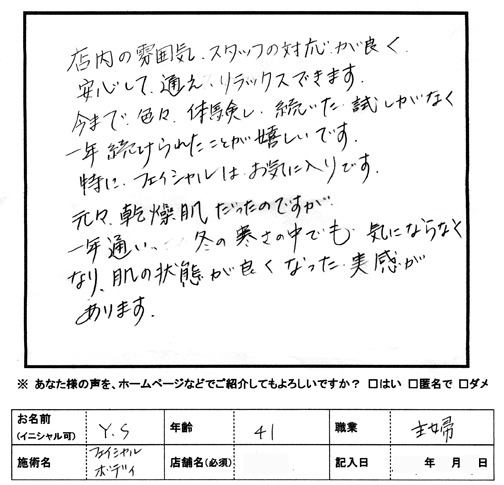 店内の雰囲気、スタッフの対応が良く、
安心して、通え、リラックスできます。
今まで、色々、体験し、続いた試しがなく
一年続けられたことが嬉しいです。
特に、フェイシャルは、お気に入りです。
元々、乾燥肌だったのですが、
一年通い、冬の寒さの中でも、気にならなく
なり、肌の状態が良くなった実感が
あります。
※ あなた様の声を、ホームページなどでご紹介してもよろしいですか？ □はい □匿名で □ダメ
お名前
(イニシャル可) Y.S 年齢 41 職業 主婦
施術名 フェイシャル ボディ 店舗名(必須) 記入日 年 月 日